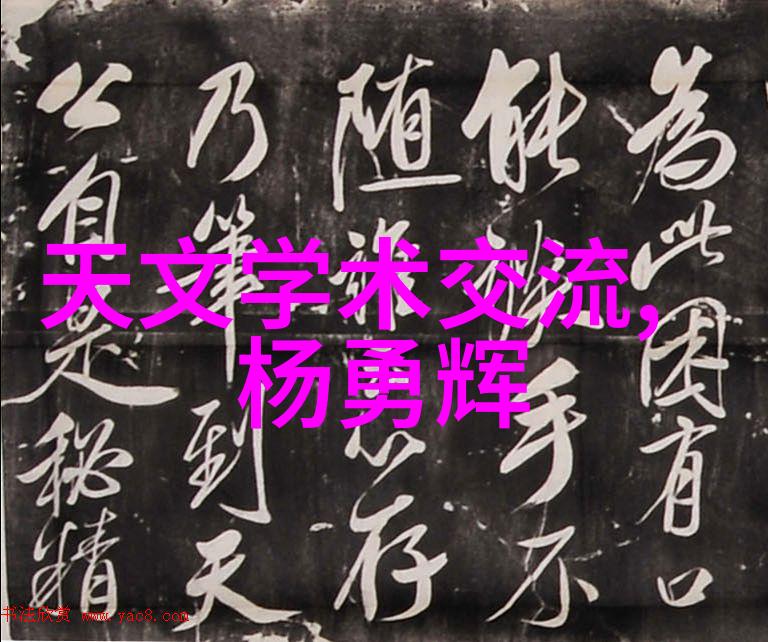 天文学术交流,
杨勇辉
為此因有口
能手不
随存
乃筆到天
公自是秘精
书法欣赏 www.yac8.com